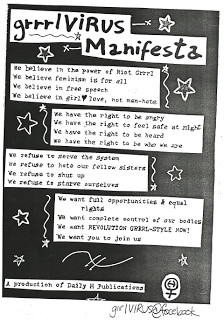 grrrl VIRUS
Manifesta
We believe in the power of Riot Grrl
We believe feminism is for all
We believe in free speech
We believe in girl♥love, not man-hate
We have the right to be angry
We have the right to feel safe at night
We have the right to be heard
We have the right to be who we are
We refuse to serve the system
We refuse to hate our fellow sisters
We refuse to shut up
We refuse to starve ourselves
We want full opportunities & equal
rights
We want complete control of our bodies
We want REVOLUTION GRRRL-STYLE NOW!
We want you to join us
A production of Daily H Publications
grrlVIRUS@facebook